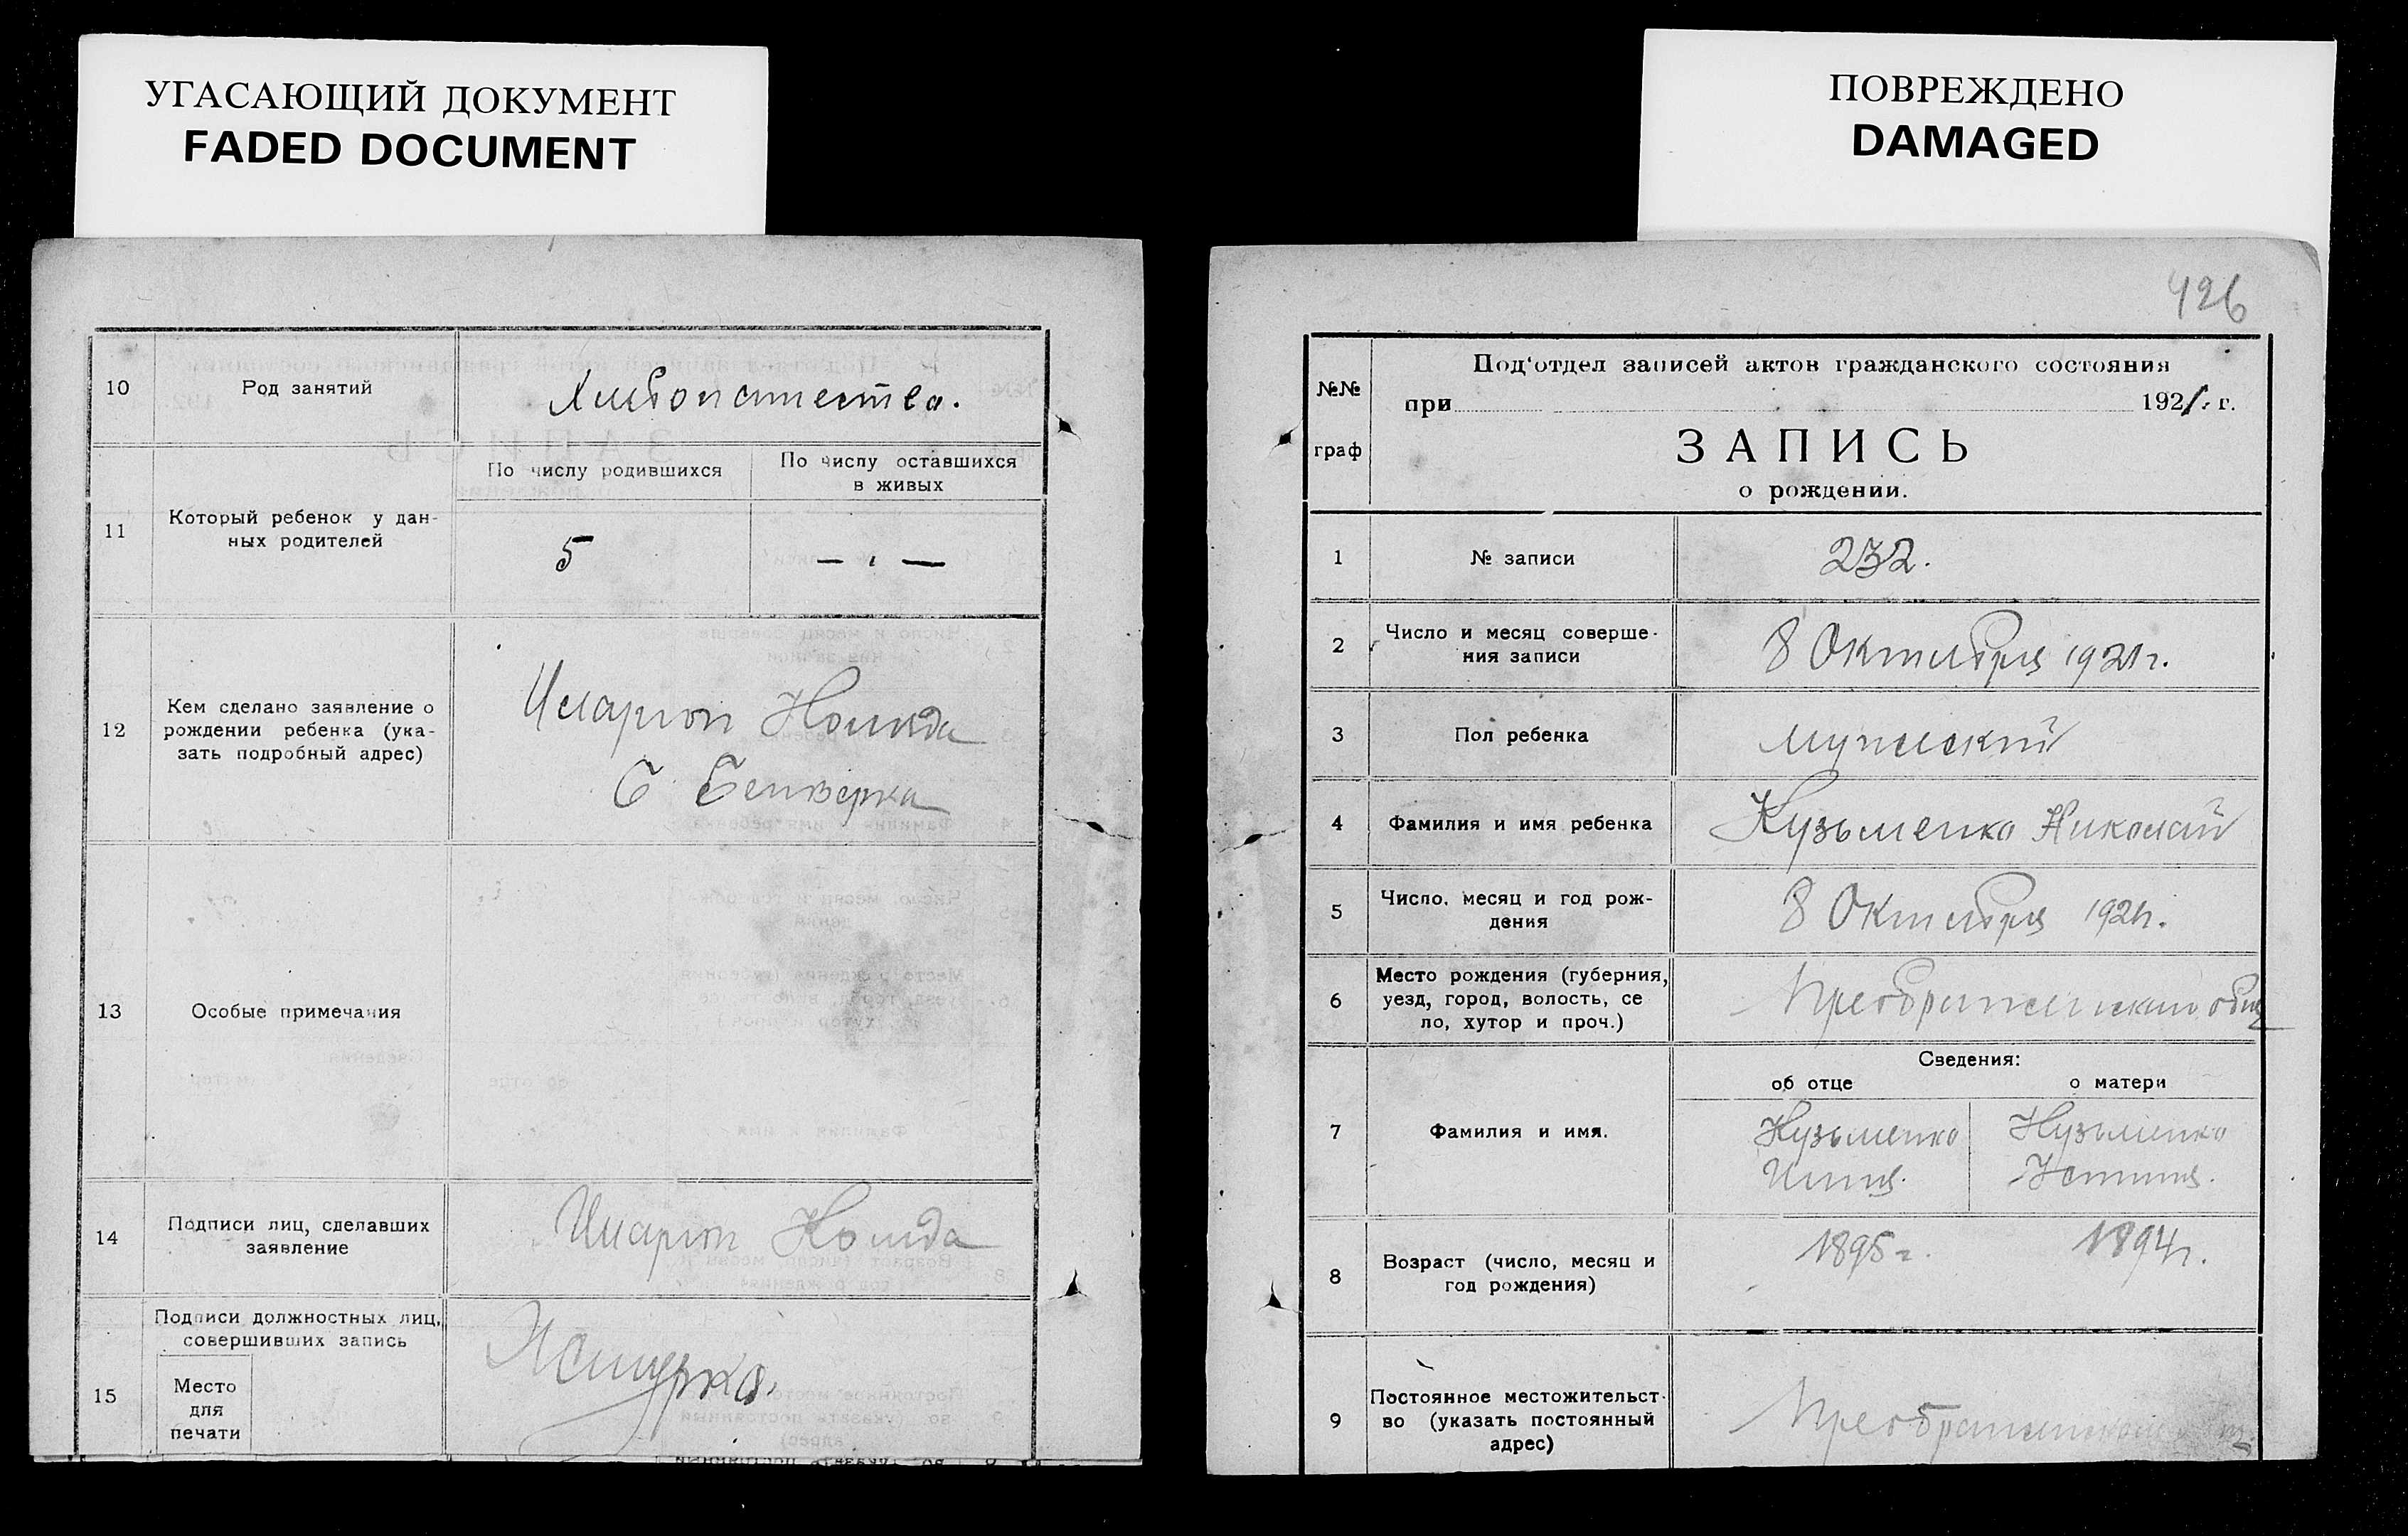 УГАСАЮЩИЙ ДОКУМЕНТ
FADED DOCUMENT
10
Род занятий
11
Который ребенок у дан-
ных родителей
По числу родившихся
По числу оставшихся
в живых
5
— ı —
12
Кем сделано заявление о
рождении ребенка (ука-
зать подробный адрес)
Иларион
С
13
Особые примечания
14
Подписи лиц, сделавших
заявление
Иларион
15
Подписи должностных лиц,
совершивших запись
Место
для
печати
ПОВРЕЖДЕНО
DAMAGED
426
№№
граф
Под‘отдел записей актов гражданского состояния
при 1921 г.
ЗАПИСЬ
о рождении.
1
№ записи
232.
2
Число и месяц соверше-
ния записи
8 Октября 1921 г.
3
Пол ребенка
мужеский
4
Фамилия и имя ребенка
Кузьменко Николай
5
Число, месяц и год рож-
дения
8 Октября 1921 г.
6
Место рождения (губерния,
уезд, город, волость, се
ло, хутор и проч.)
7
Фамилия и имя.
Сведения:
об отце
Кузьменко
о матери
Кузьменко
8
Возраст (число, месяц и
год рождения)
1895 г.
1894 г.
9
Постоянное местожительст-
во (указать постоянный
адрес)